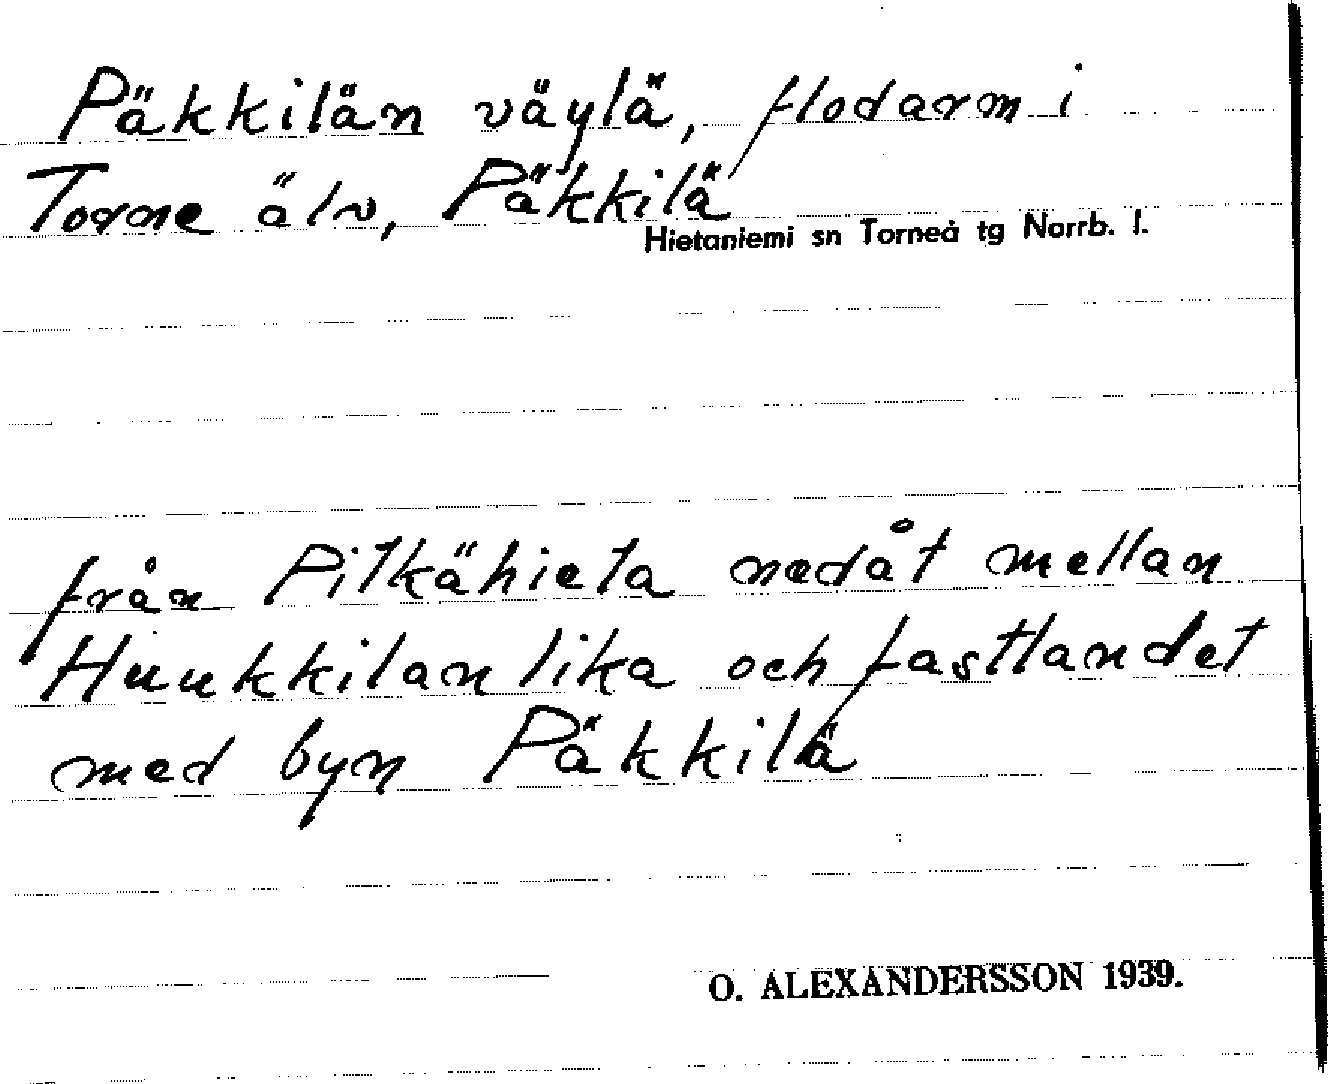 Päkkilän väylä, flodarm i
Torne älv, Päkkilä
Hietaniemi sn Torneå tg Norrb. l.
från Pitkähieta nedåt mellan
Huukkilan lika och fastlandet
med byn Päkkilä
O. ALEXANDERSSON 1939.